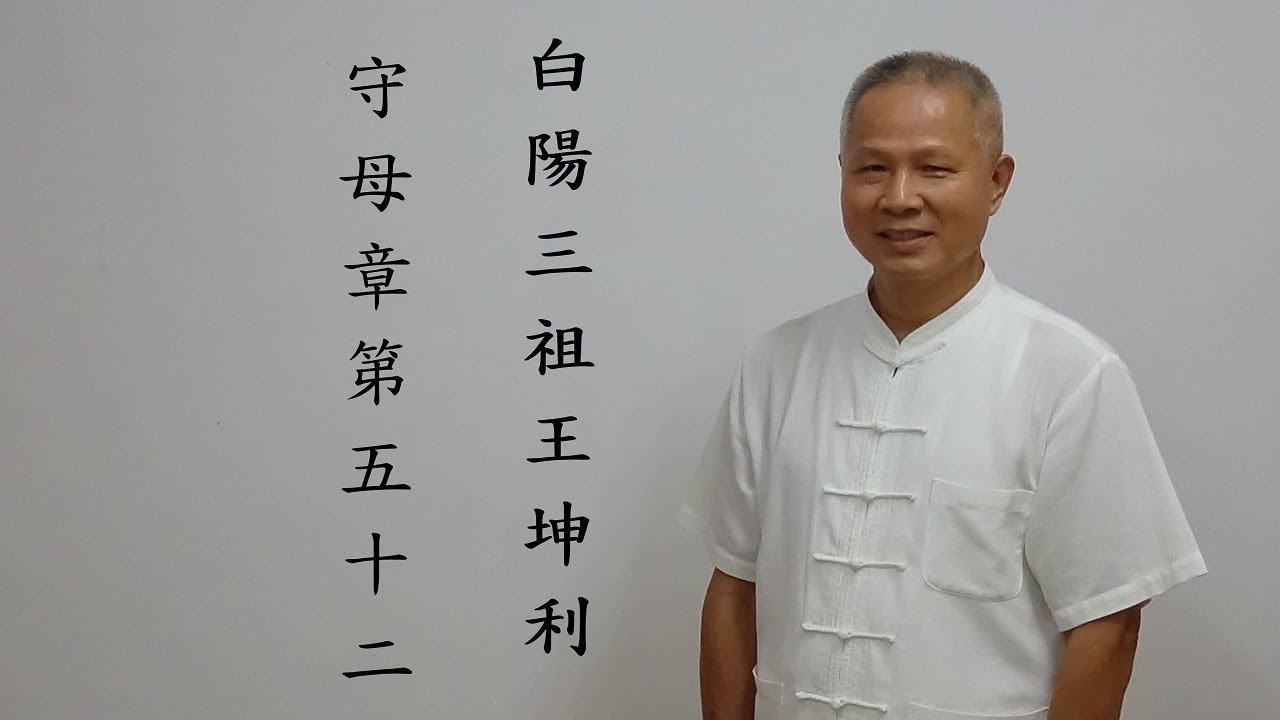 白陽三祖王坤利
守母章第五十二